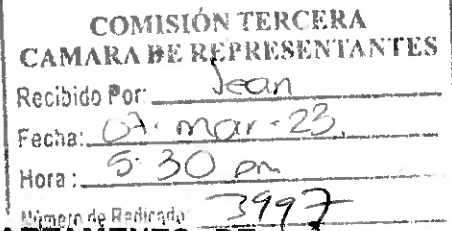 COMISIÓN TERCERA
CAMARA DE REPRESENTANTES
Recibido Por: Jean
Fecha: 07. mar. 23.
Hora: 5:30 pm
Número de Radicado: 3997